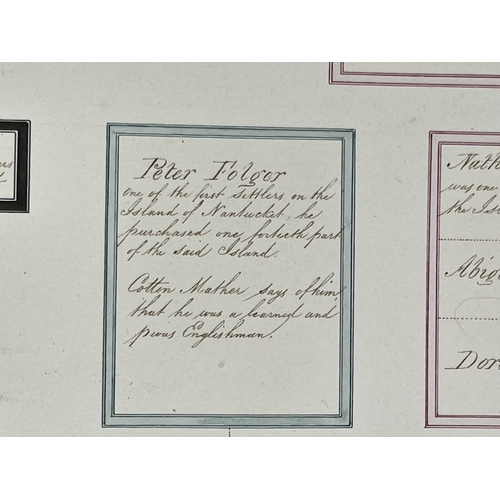 Peter Folger
one of the first Settlers on the
Island of Nantucket, he
purchased one fortieth part
of the said Island.
Cotton Mather says of him,
that he was a learned and
pious Englishman.
Nath
was one
the Isl
Abig
Dor